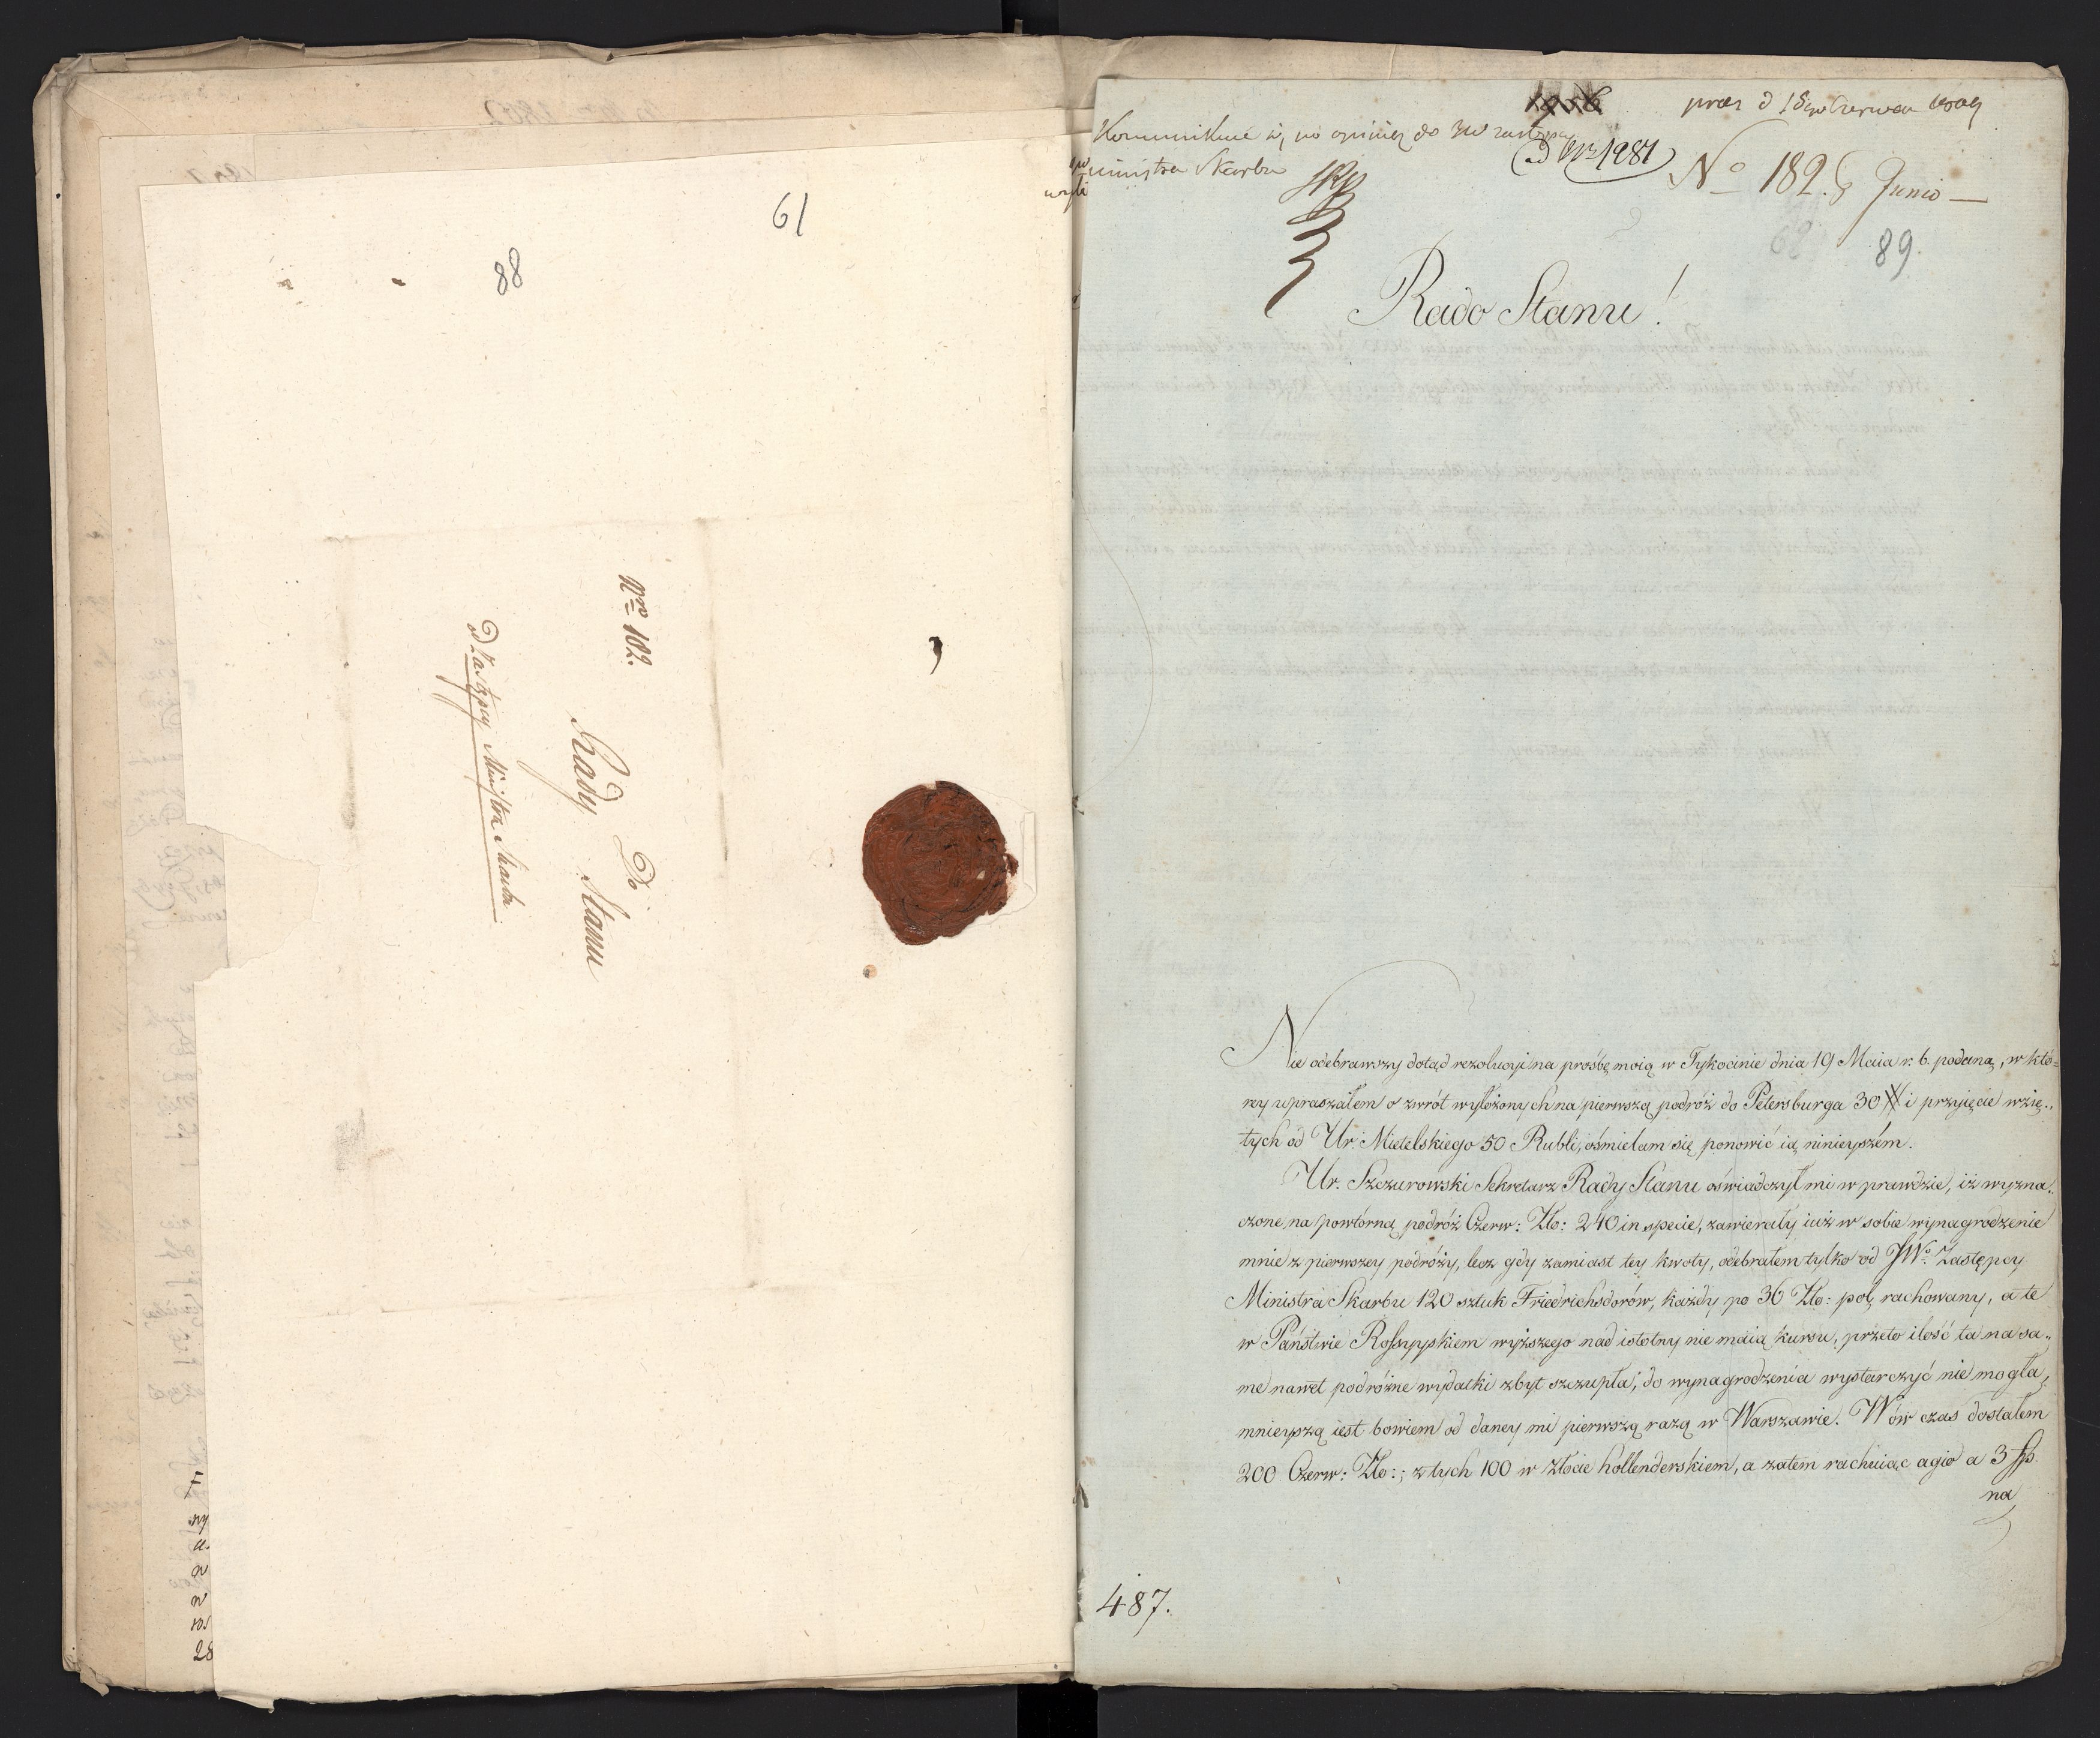 61
88
Nro 102.
Do
Rady Stanu
od Zastępcy Ministra Skarbu
prez d 18go Czerwca 1809
Kommunikuie się po opinią do JW zastępcy
ad Nr 1987
Ministra Skarbu
No 182. Junio
62
89.
Rado Stanu!
Nie odebrawszy dotąd rezolucyi na prośbę moią w Tykocinie dnia 19 Maia r. b. podaną, w któ-
rey upraszałem o zwrót wyłożonych na pierwszą podróż do Petersburga 30 # i przyięcie wzię-
tych od Ur. Mielelskiego 50 Rubli, ośmielam się ponowić ią ninieyszém.
Ur. Szczurowski Sekretarz Rady Stanu oświadczył mi w prawdzie, iż wyzna-
czone na powtórną podróż Czerw: Zło: 240 in specie, zawierały iuż w sobie wynagrodzenie
mnie z pierwszey podróży, lecz gdy zamiast tey kwoty, odebrałem tylko od JWo. Zastępcy
Ministra Skarbu 120 sztuk Friedrichsdorów, każdy po 36 Zło: pol. rachowany, a te
w Państwie Rossyyskiem wyższego nad istotny nie maią kursu, przeto ilość ta na sa-
me nawet podróżne wydatki zbyt szczupła, do wynagrodzenia wystarczyć nie mogła,
mnieyszą iest bowiem od daney mi pierwszą razą w Warszawie. Wów czas dostałem
200 Czerw: Zło:; z tych 100 w złocie hollenderskiem, a zatem rachuiąc agio a 3 fp.
na
487.